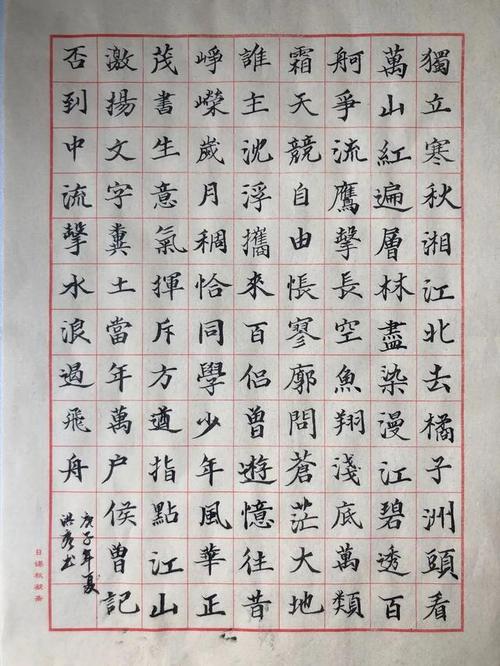 獨立寒秋湘江北去橘子洲頭看
萬山紅遍層林盡染漫江碧透百
舸爭流鷹擊長空魚翔淺底萬類
霜天競自由悵寥廓問蒼茫大地
誰主沈浮攜來百侶曾遊憶往昔
崢嶸歲月稠恰同學少年風華正
茂書生意氣揮斥方遒指點江山
激揚文字糞土當年萬户侯曾記
否到中流擊水浪遏飛舟
庚子年夏
洪彥书